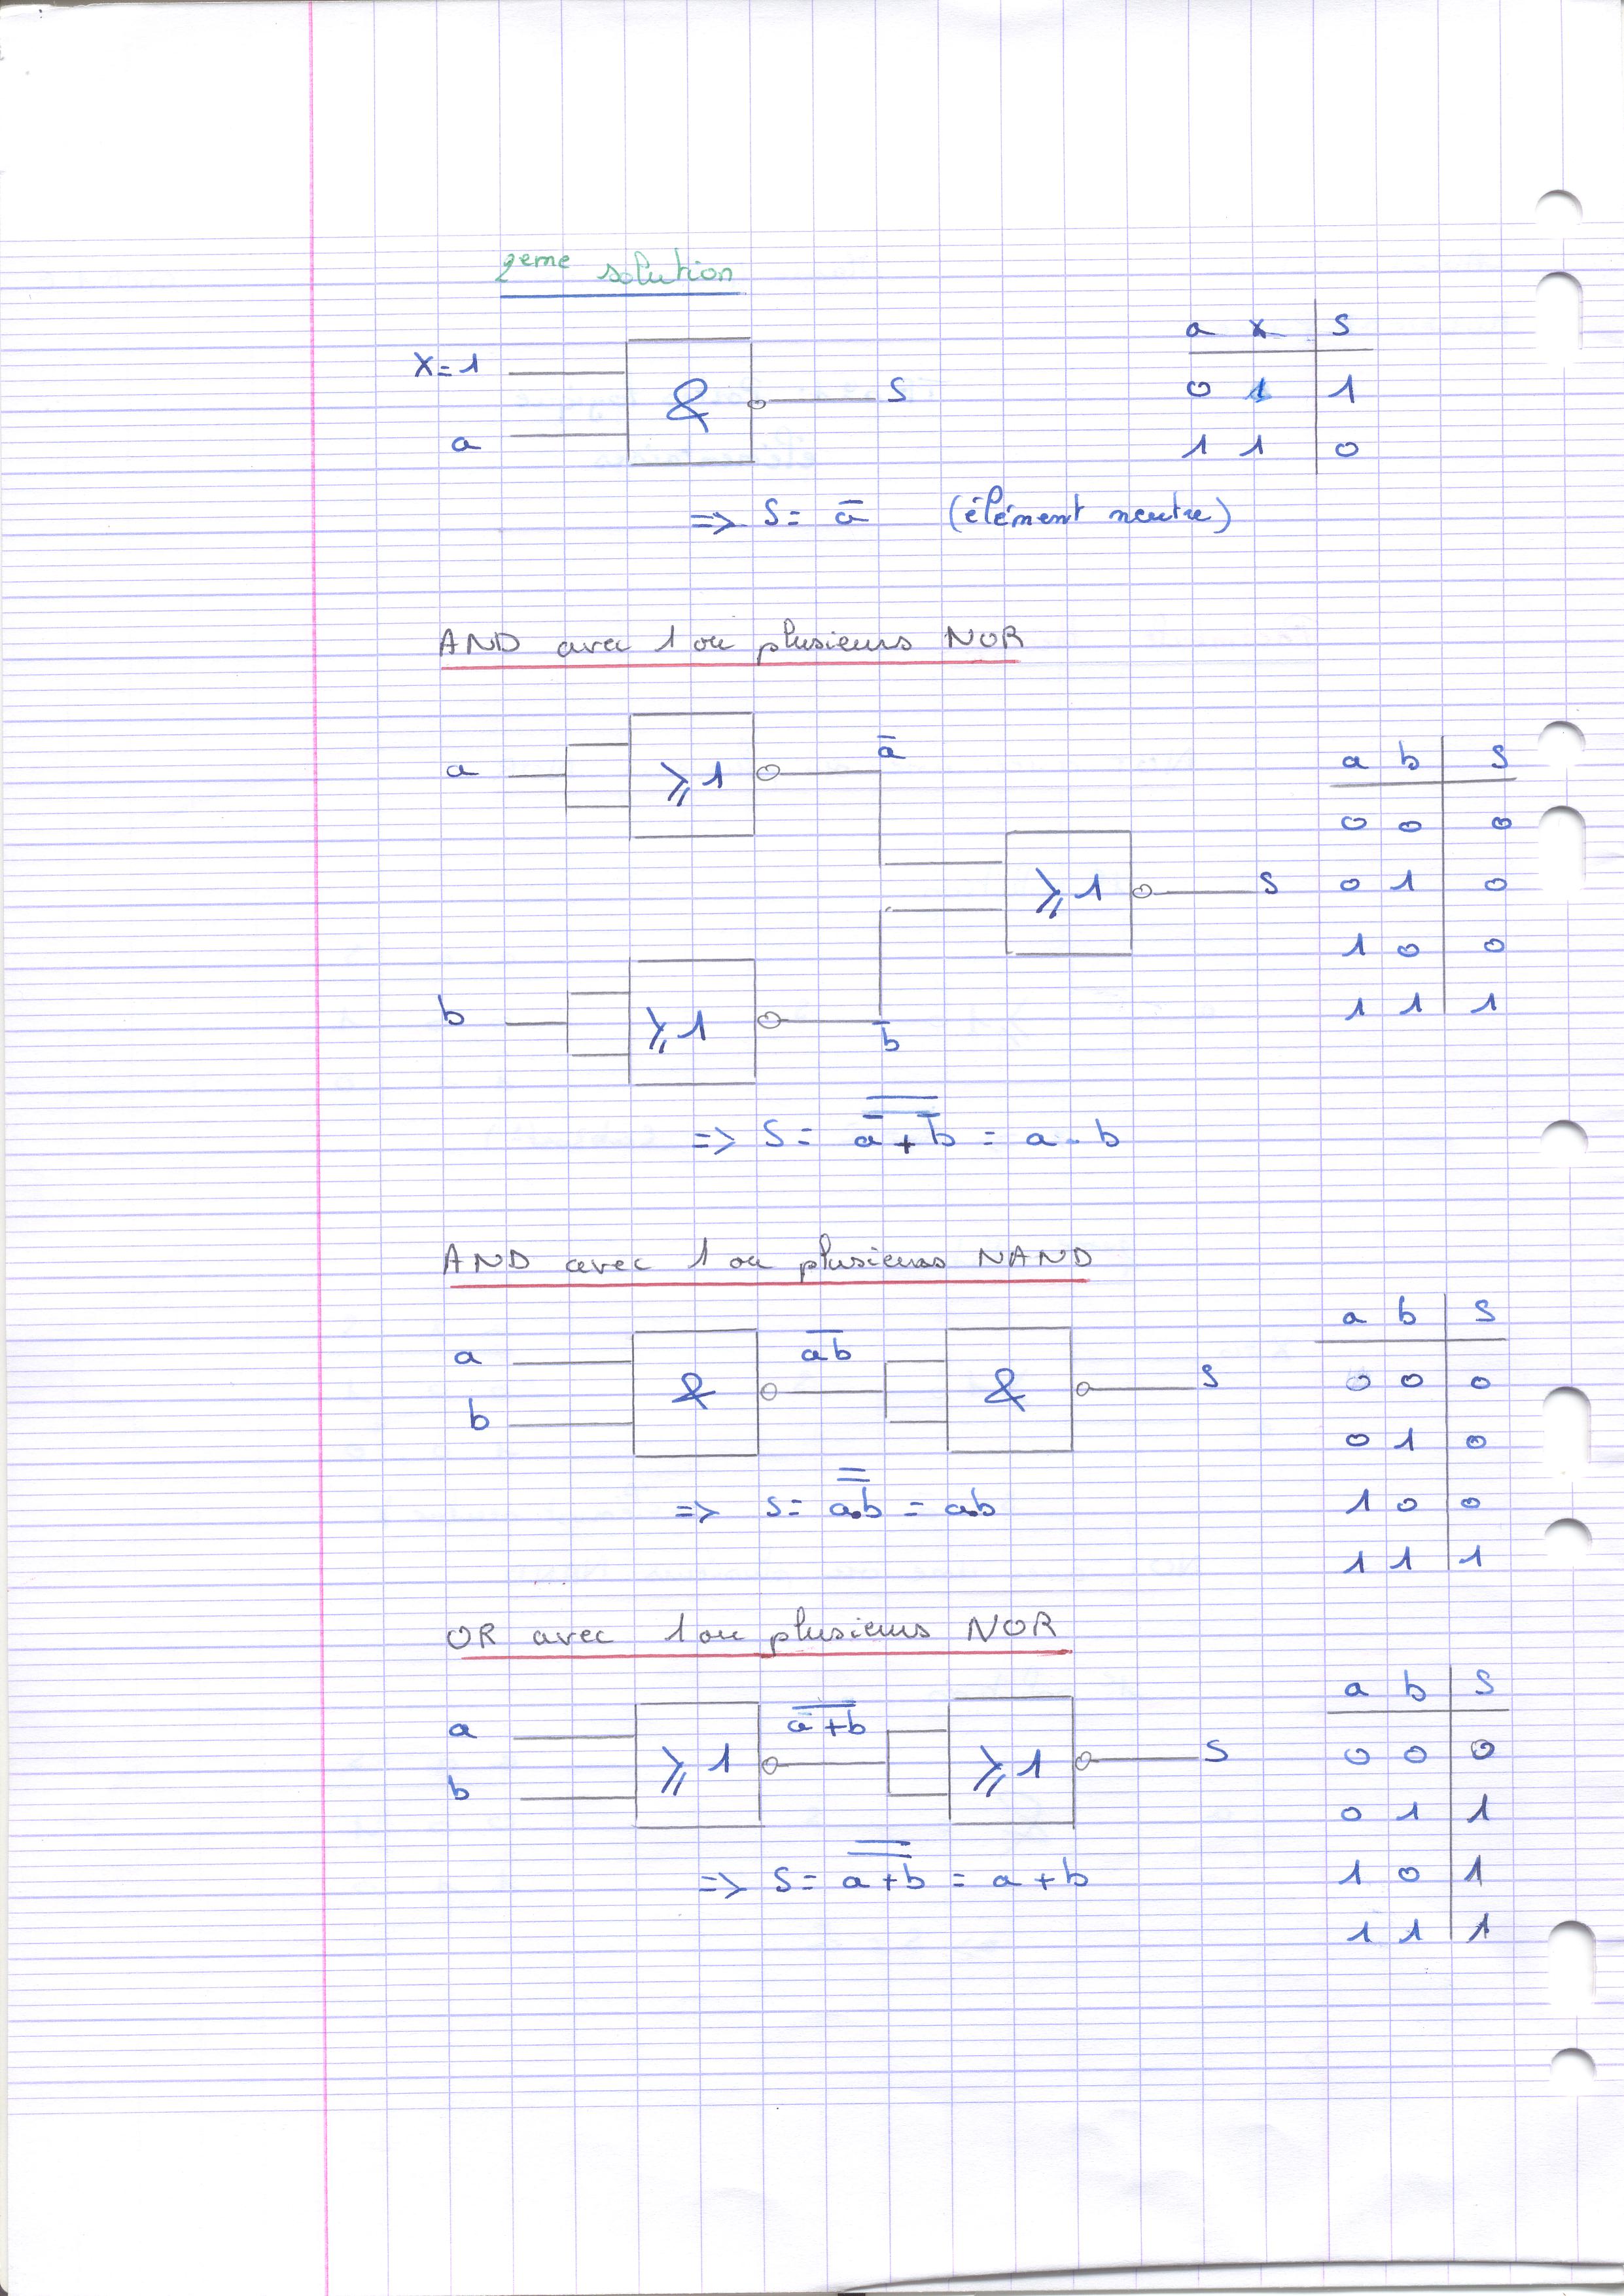 2eme solution
a x S
X=1
& S
0 1 1
a
1 1 0
=> S= a̅ (élément neutre)
AND avec 1 ou plusieurs NOR
a̅
a b S
a ⩾1
0 0 0
⩾1 S
0 1 0
1 0 0
b ⩾1
1 1 1
b̅
=> S= \overline{\overline{a̅+b̅}} = a . b
AND avec 1 ou plusieurs NAND
a b S
a \overline{ab}
& & S
0 0 0
b
0 1 0
=> S= \overline{\overline{a.b}} = a.b
1 0 0
1 1 1
OR avec 1 ou plusieurs NOR
a b S
a \overline{a+b}
⩾1 ⩾1 S
0 0 0
b
0 1 1
=> S= \overline{\overline{a+b}} = a+b
1 0 1
1 1 1